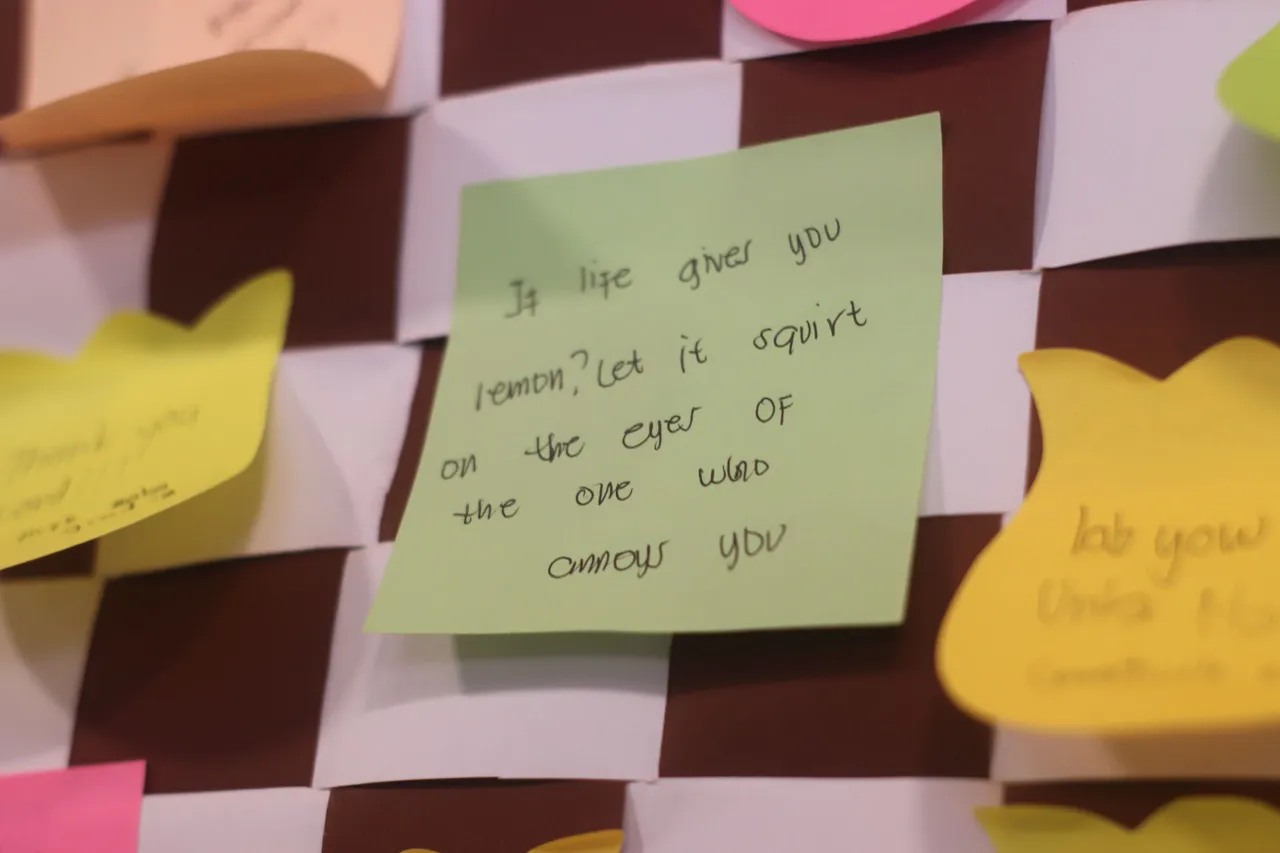 If life gives you
lemon? Let it squirt
on the eyes OF
the one who
annoys you
Thank you
lab your